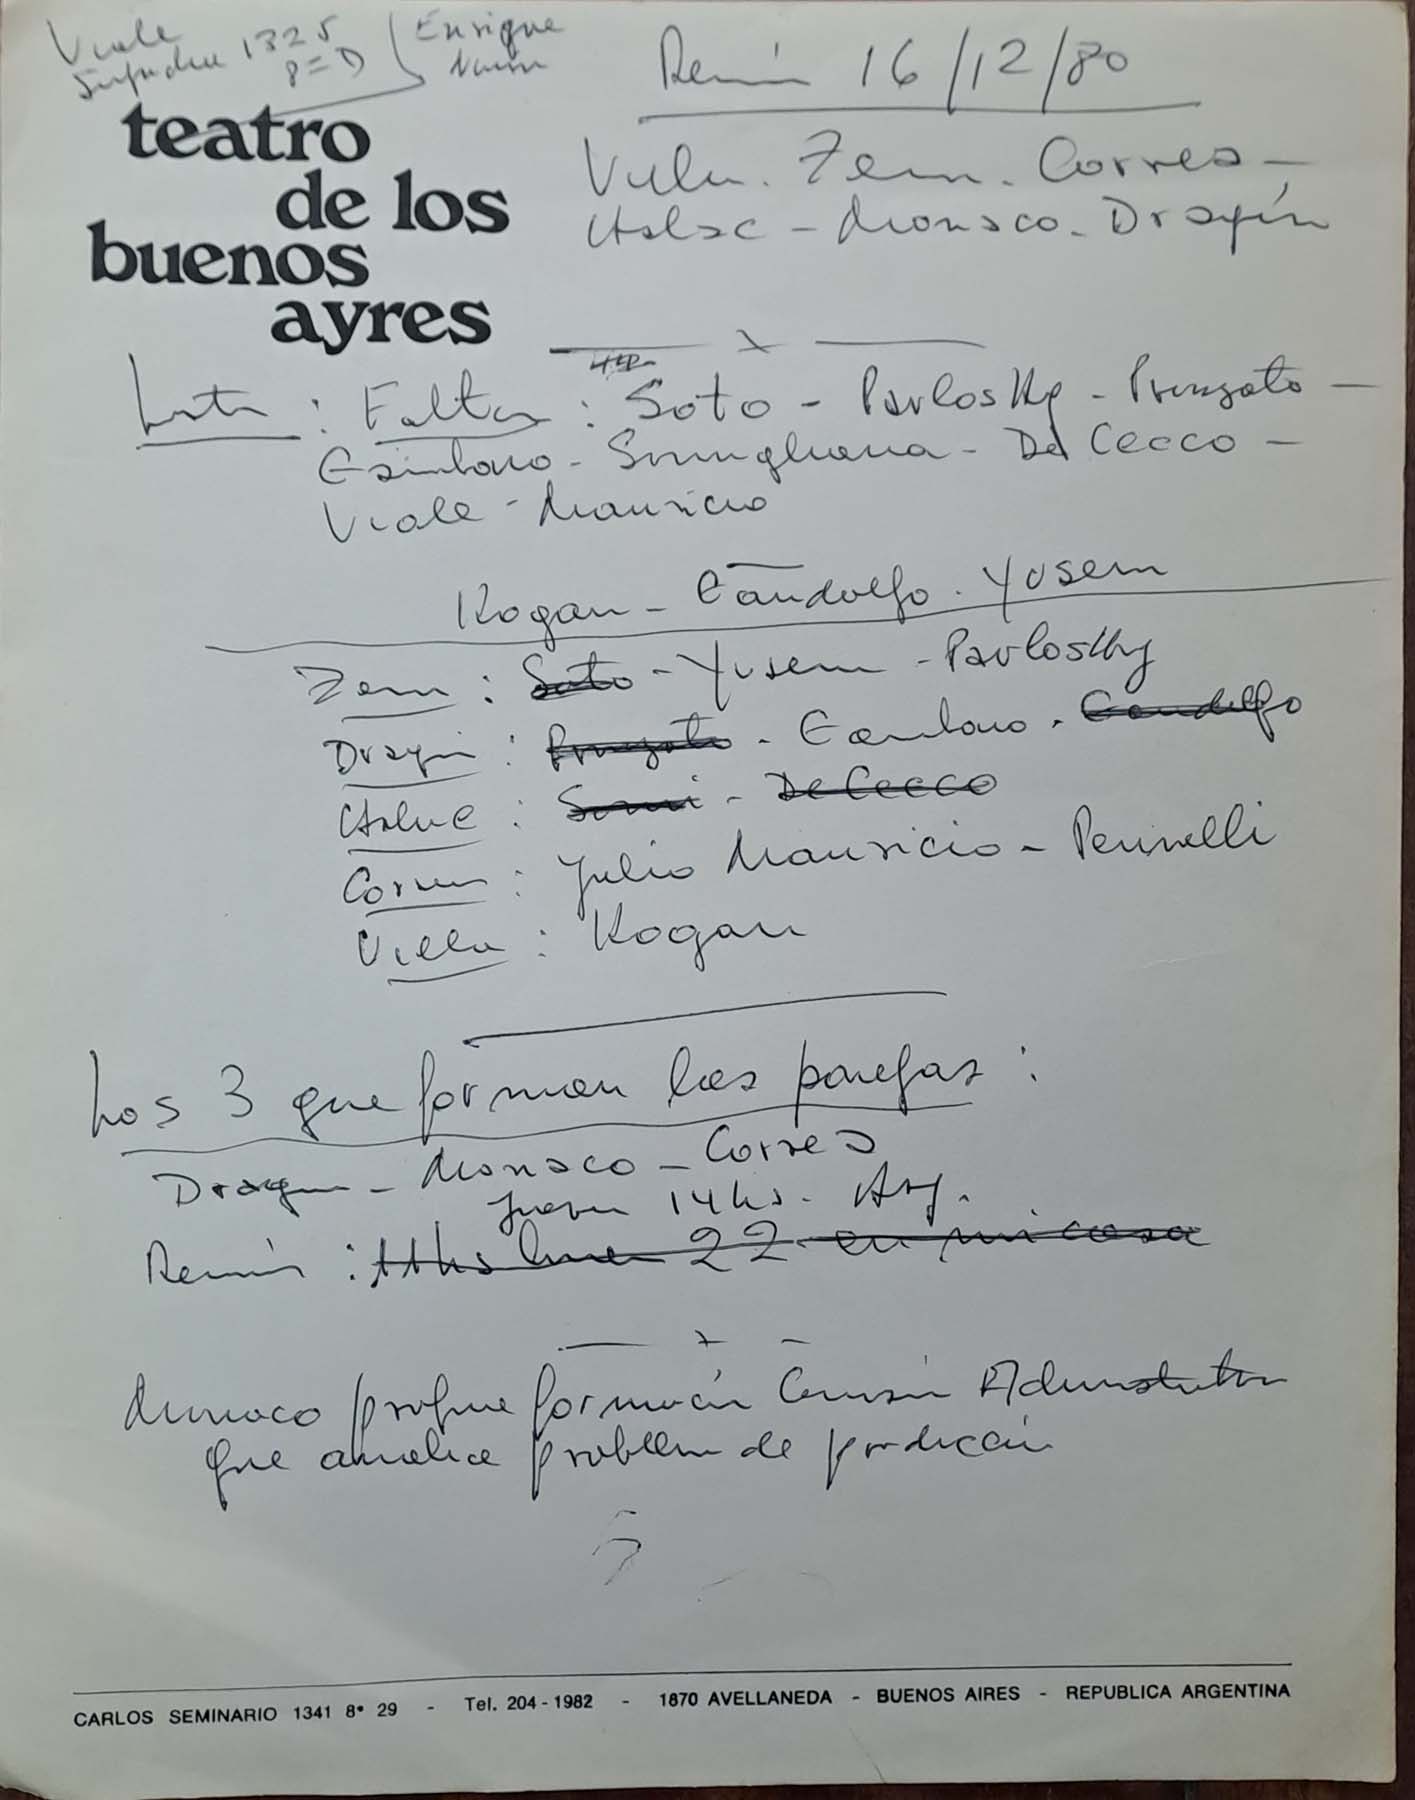 Viale
1325 Enrique
8= D
teatro
de los
buenos
ayres
Reunión 16/12/80
Villa. Zem. Correa -
Halac - Monaco - Dragún
Lista : Faltan : Soto - Pavlosky - Pronzato -
Esímbono - Somigliana - De Cecco -
Viale - Mauricio
Kogan - Gandolfo - Yusem
Zem : Soto - Yusem - Pavlosky
Dragún : Pronzato - - Gandolfo
Halac : Somi - De Cecco
Correa : Julio Mauricio - Perinelli
Villa : Kogan
Los 3 que forman las parejas :
Dragún - Monaco - Correa
Jueves 14 hs. Arg.
Reunión : 11 hs lunes 22 en mi casa
Monaco propone formación Comisión Administrativa
que analice problema de producción
CARLOS SEMINARIO 1341 8º 29 - Tel. 204-1982 - 1870 AVELLANEDA - BUENOS AIRES - REPUBLICA ARGENTINA